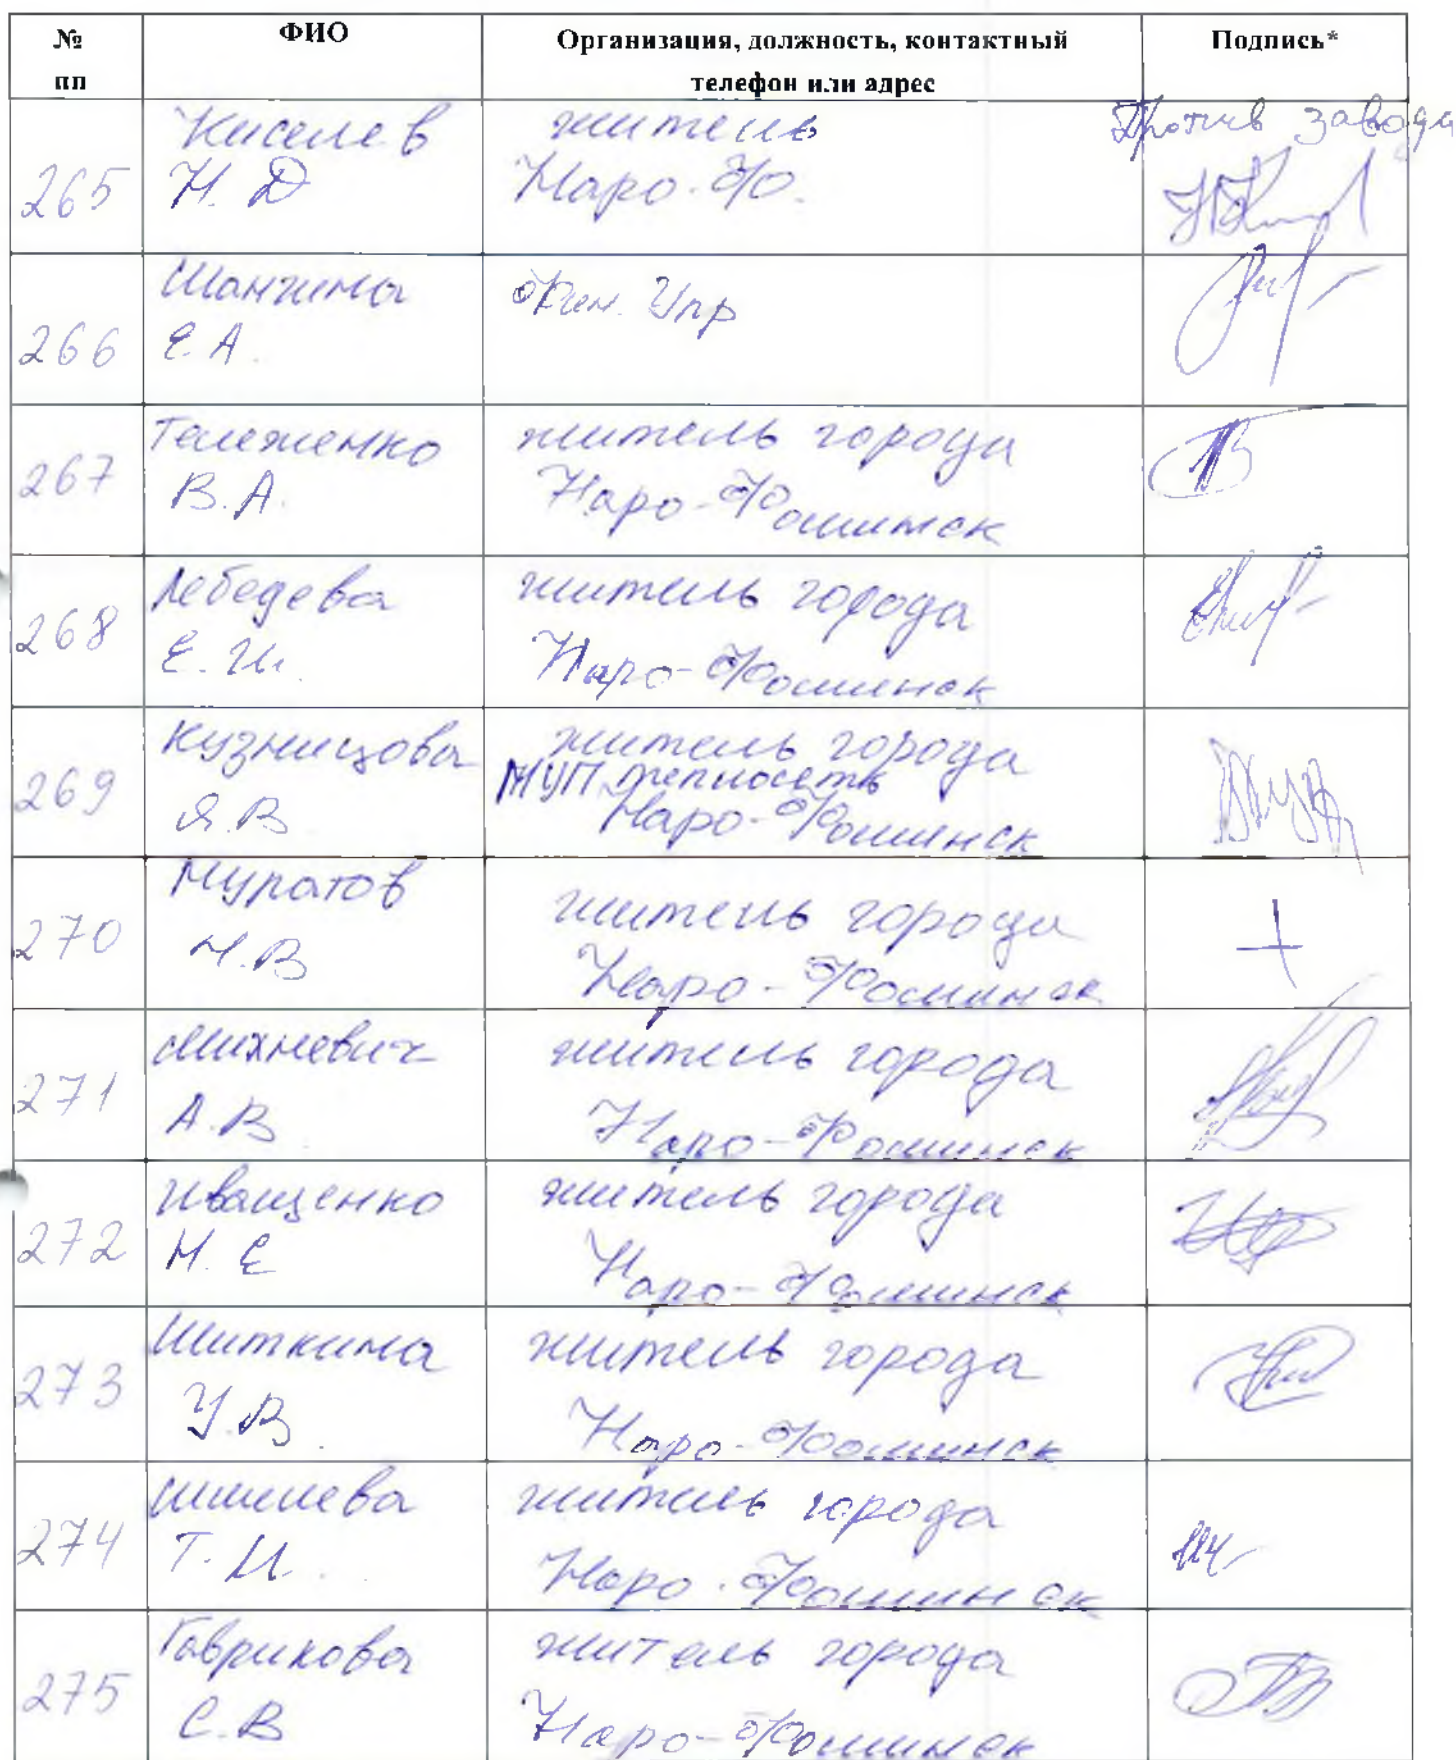 № пп ФИО Организация, должность, контактный телефон или адрес Подпись*
Против завода
265 Киселев Н. Д житель Наро-Фо.
266 Е.А. Упр
267 Тележенко В.А. житель города Наро-Фоминск
268 Лебедева Е. И. житель города Наро-Фоминск
269 Кузницова Я.В житель города МУП теплосеть Наро-Фоминск
270 Муратов Н.В житель города Наро-Фоминск
271 Михневич А.В житель города Наро-Фоминск
272 Иващенко Н. Е житель города Наро-Фоминск
273 Шиткина У.В. житель города Наро-Фоминск
274 Т. И. житель города Наро-Фоминск
275 Гаврикова С.В житель города Наро-Фоминск